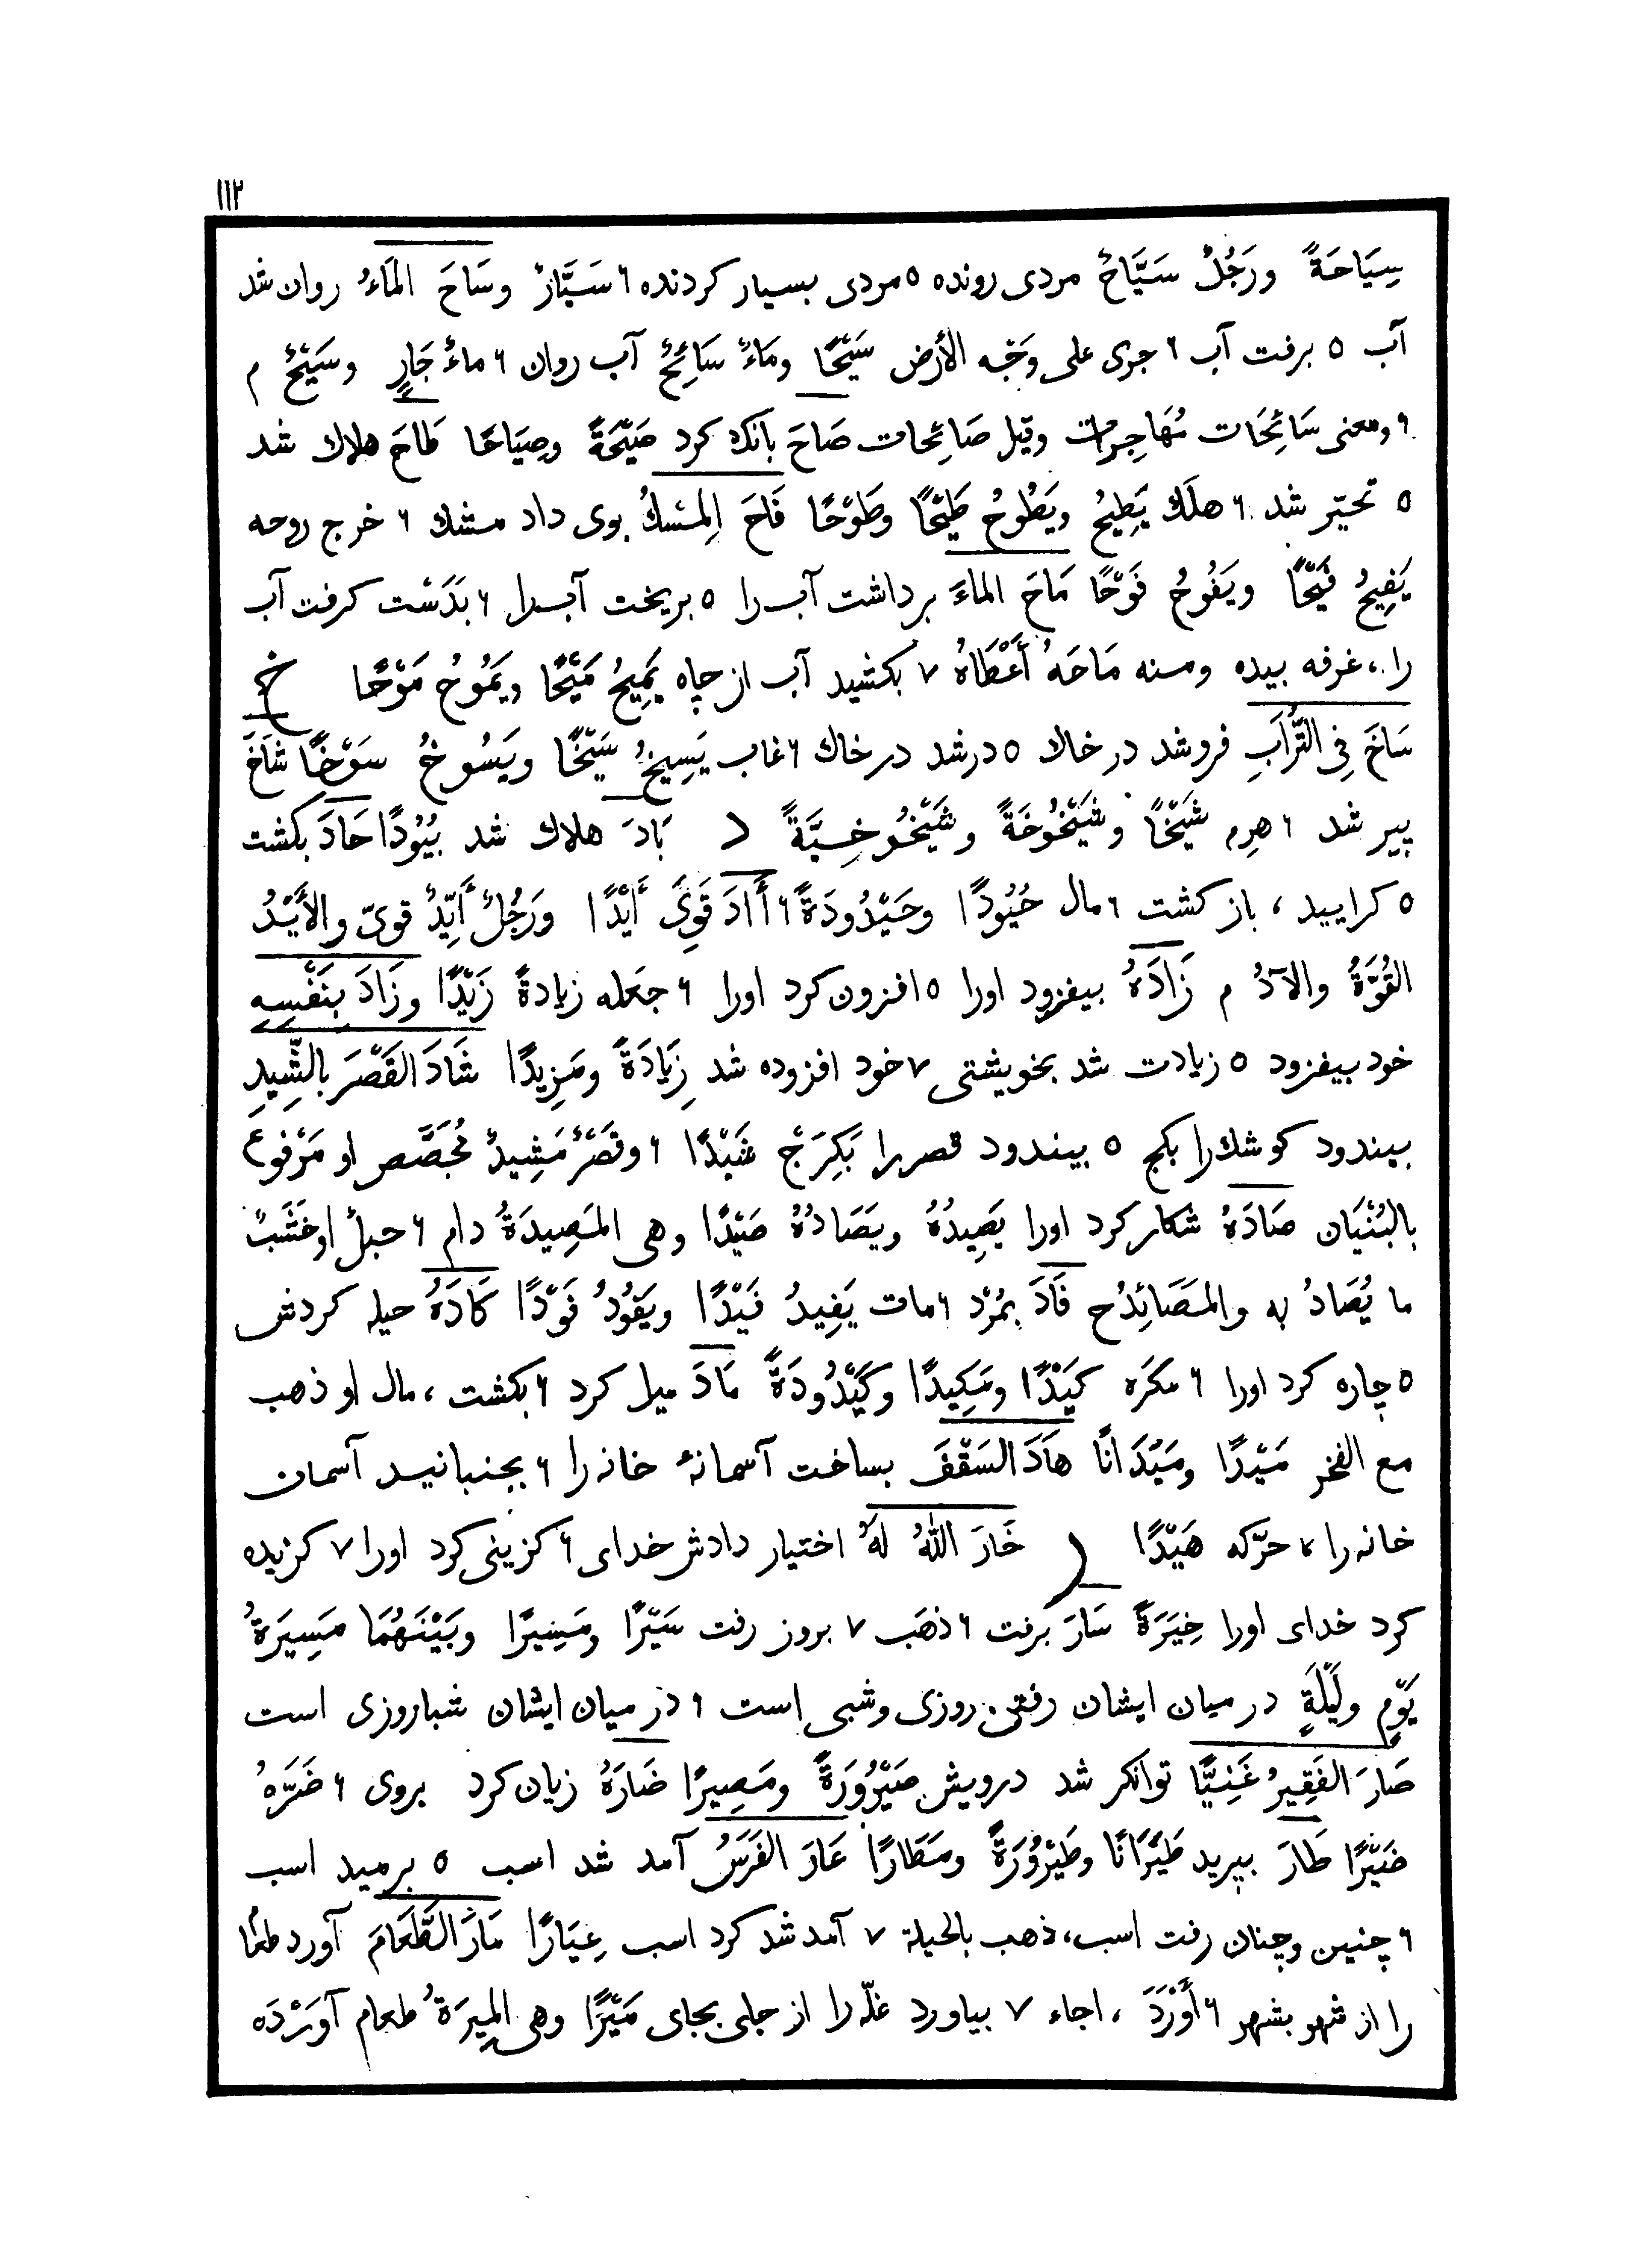 ١١٢
سِيَاحَةً ورَجُلٌ سَيَّاحٌ مردی رونده ٥ مردی بسیار کردنده ٦ سَيَّارٌ وسَاحَ المَاءُ روان شد
آب ٥ برفت آب ٦ جری علی وَجْه الأرض سَيْحًا ومَاءٌ سَائِحٌ آب روان ٦ ماءٌ جَارٍ وسَيْحٌ م
٦ ومعنی سَائِحَات مُهَاجِرات وقیل صَائِحات صَاحَ بانک کرد صَيْحَةً وصِيَاحًا طَاحَ هلاك شد
٥ تحیّر شد ٦ هلَك يَطِيحُ ويَطُوحُ طَيْحًا وطَوْحًا فَاحَ المِسْكُ بوی داد مشك ٦ خرج روحه
يَفِيحُ فَيْحًا ويَفُوحُ فَوْحًا مَاحَ الماءَ برداشت آب را ٥ بریخت آب را ٦ بدَسْت کرفت آب
را ، غرفه بیده ومنه مَاحَهُ أَعْطَاهُ ٧ بکشید آب از چاه يَمِيحُ مَيْحًا ويَمُوحُ مَوْحًا خ
سَاخَ فِی التُّرَابِ فروشد در خاك ٥ درشد در خاك ٦ غاب يَسِيخُ سَيْخًا ويَسُوخُ سَوْخًا شَاخَ
پیر شد ٦ هرِم شَيْخًا وشَيْخُوخَةً وشَيْخُوخِيَّةً د بَادَ هلاك شد بُيُودًا حَادَ بکشت
٥ کرایید ، باز کشت ٦ مال حُيُودًا وحَيْدُودَةً ٦ أَادَ قَوِیَ أَيْدًا ورَجُلٌ أَيِّدٌ قویّ والأَيْدُ
القُوَّةُ والآدُ م زَادَهُ بیفزود اورا ٥ افزون کرد اورا ٦ جعَله زیادةً زَيْدًا وزَادَ بِنَفْسِهِ
خود بیفزود ٥ زیادت شد بخویشتی ٧ خود افزوده شد زِيَادَةً ومَزِيدًا شَادَ القَصْرَ بالشِّيدِ
بیندود کوشك را بکج ٥ بیندود قصر را بَكِرَجْ شَيْدًا ٦ وقصْرٌ مَشِيدٌ مُجَصَّص او مَرْفوع
بالبُنْيَان صَادَهُ شکار کرد اورا يَصِيدُهُ ويَصَادُهُ صَيْدًا وهی المَصِيدَةُ دام ٦ حبلٌ او خَشَبٌ
ما يُصَادُ به والمَصَائِدُ ح فَادَ بمُرْد ٦ مات يَفِيدُ فَيْدًا ويَفُودُ فَوْدًا كَادَهُ حیله کردش
٥ چاره کرد اورا ٦ مکَره كَيْدًا ومَكِيدًا وكَيْدُودَةً مَادَ میل کرد ٦ بکشت ، مال او ذهب
مع الفخر مَيْدًا ومَيْدَانًا هَادَ السَقْفَ بساخت آسمانهٔ خانه را ٦ بجنبانید آسمان
خانه را ٧ حرّکه هَيْدًا ر خَارَ اللهُ لهُ اختیار دادش خدای ٦ کزینی کرد اورا ٧ کزیده
کرد خدای اورا خِيَرَةً سَارَ برفت ٦ ذهَب ٧ بروز رفت سَيْرًا ومَسِيرًا وبَيْنَهُمَا مَسِيرَةُ
يَوْمٍ ولَيْلَةٍ در میان ایشان رفتن روزی وشبی است ٦ در میان ایشان شباروزی است
صَارَ الفَقِيرُ غَنِيًّا توانکر شد درویش صَيْرُورَةً ومَصِيرًا ضَارَهُ زیان کرد بروی ٦ ضَرَّهُ
ضَيْرًا طَارَ بپرید طَيَرَانًا وطَيْرُورَةً ومَطَارًا عَارَ الفَرَسُ آمد شد اسب ٥ برمید اسب
٦ چنین وچنان رفت اسب ، ذهب بالحیلة ٧ آمد شد کرد اسب عِيَارًا مَارَ الطَّعَامَ آورد طعام
را از شهر بشهر ٦ أَوْرَدَ ، اجاء ٧ بیاورد غلّه را از جای بجای مَيْرًا وهی المِيرَةُ طعام آوَرْدَه